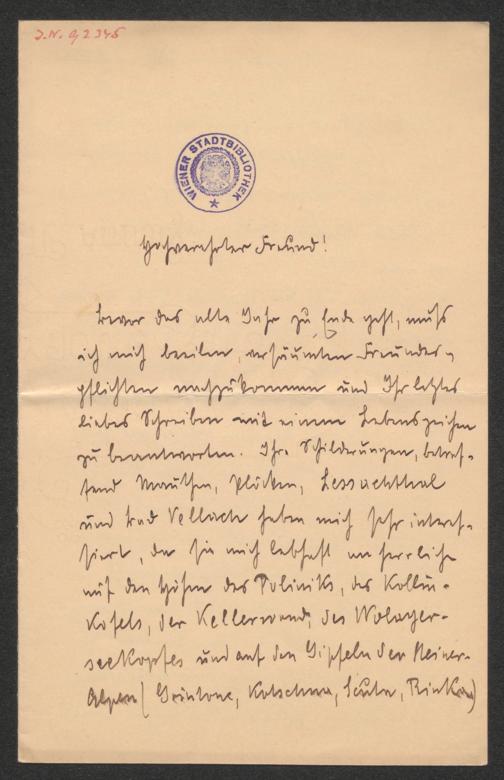 J.N. 92345
WIENER STADTBIBLIOTHEK
Hochverehrter Freund!
Bevor das alte Jahr zu Ende geht, muß
ich mich beeilen, versäumten Freundes-
pflichten nachzukommen und Ihr letztes
liebes Schreiben mit einem Lebenszeichen
zu beantworten. Ihre Schilderungen, betref-
fend Mauthen, Plöcken, Lessachthal
und Bad Vellach haben mich sehr interes-
siert, da sie mich lebhaft an herrliche
auf den Höhen des Poliniks, des Kollin-
kofels, der Kellerwand, des Wolayer-
seekopfes und auf den Gipfeln der Steiner-
Alpen (Grintouc, Kotschna, Skuta, Rinka)